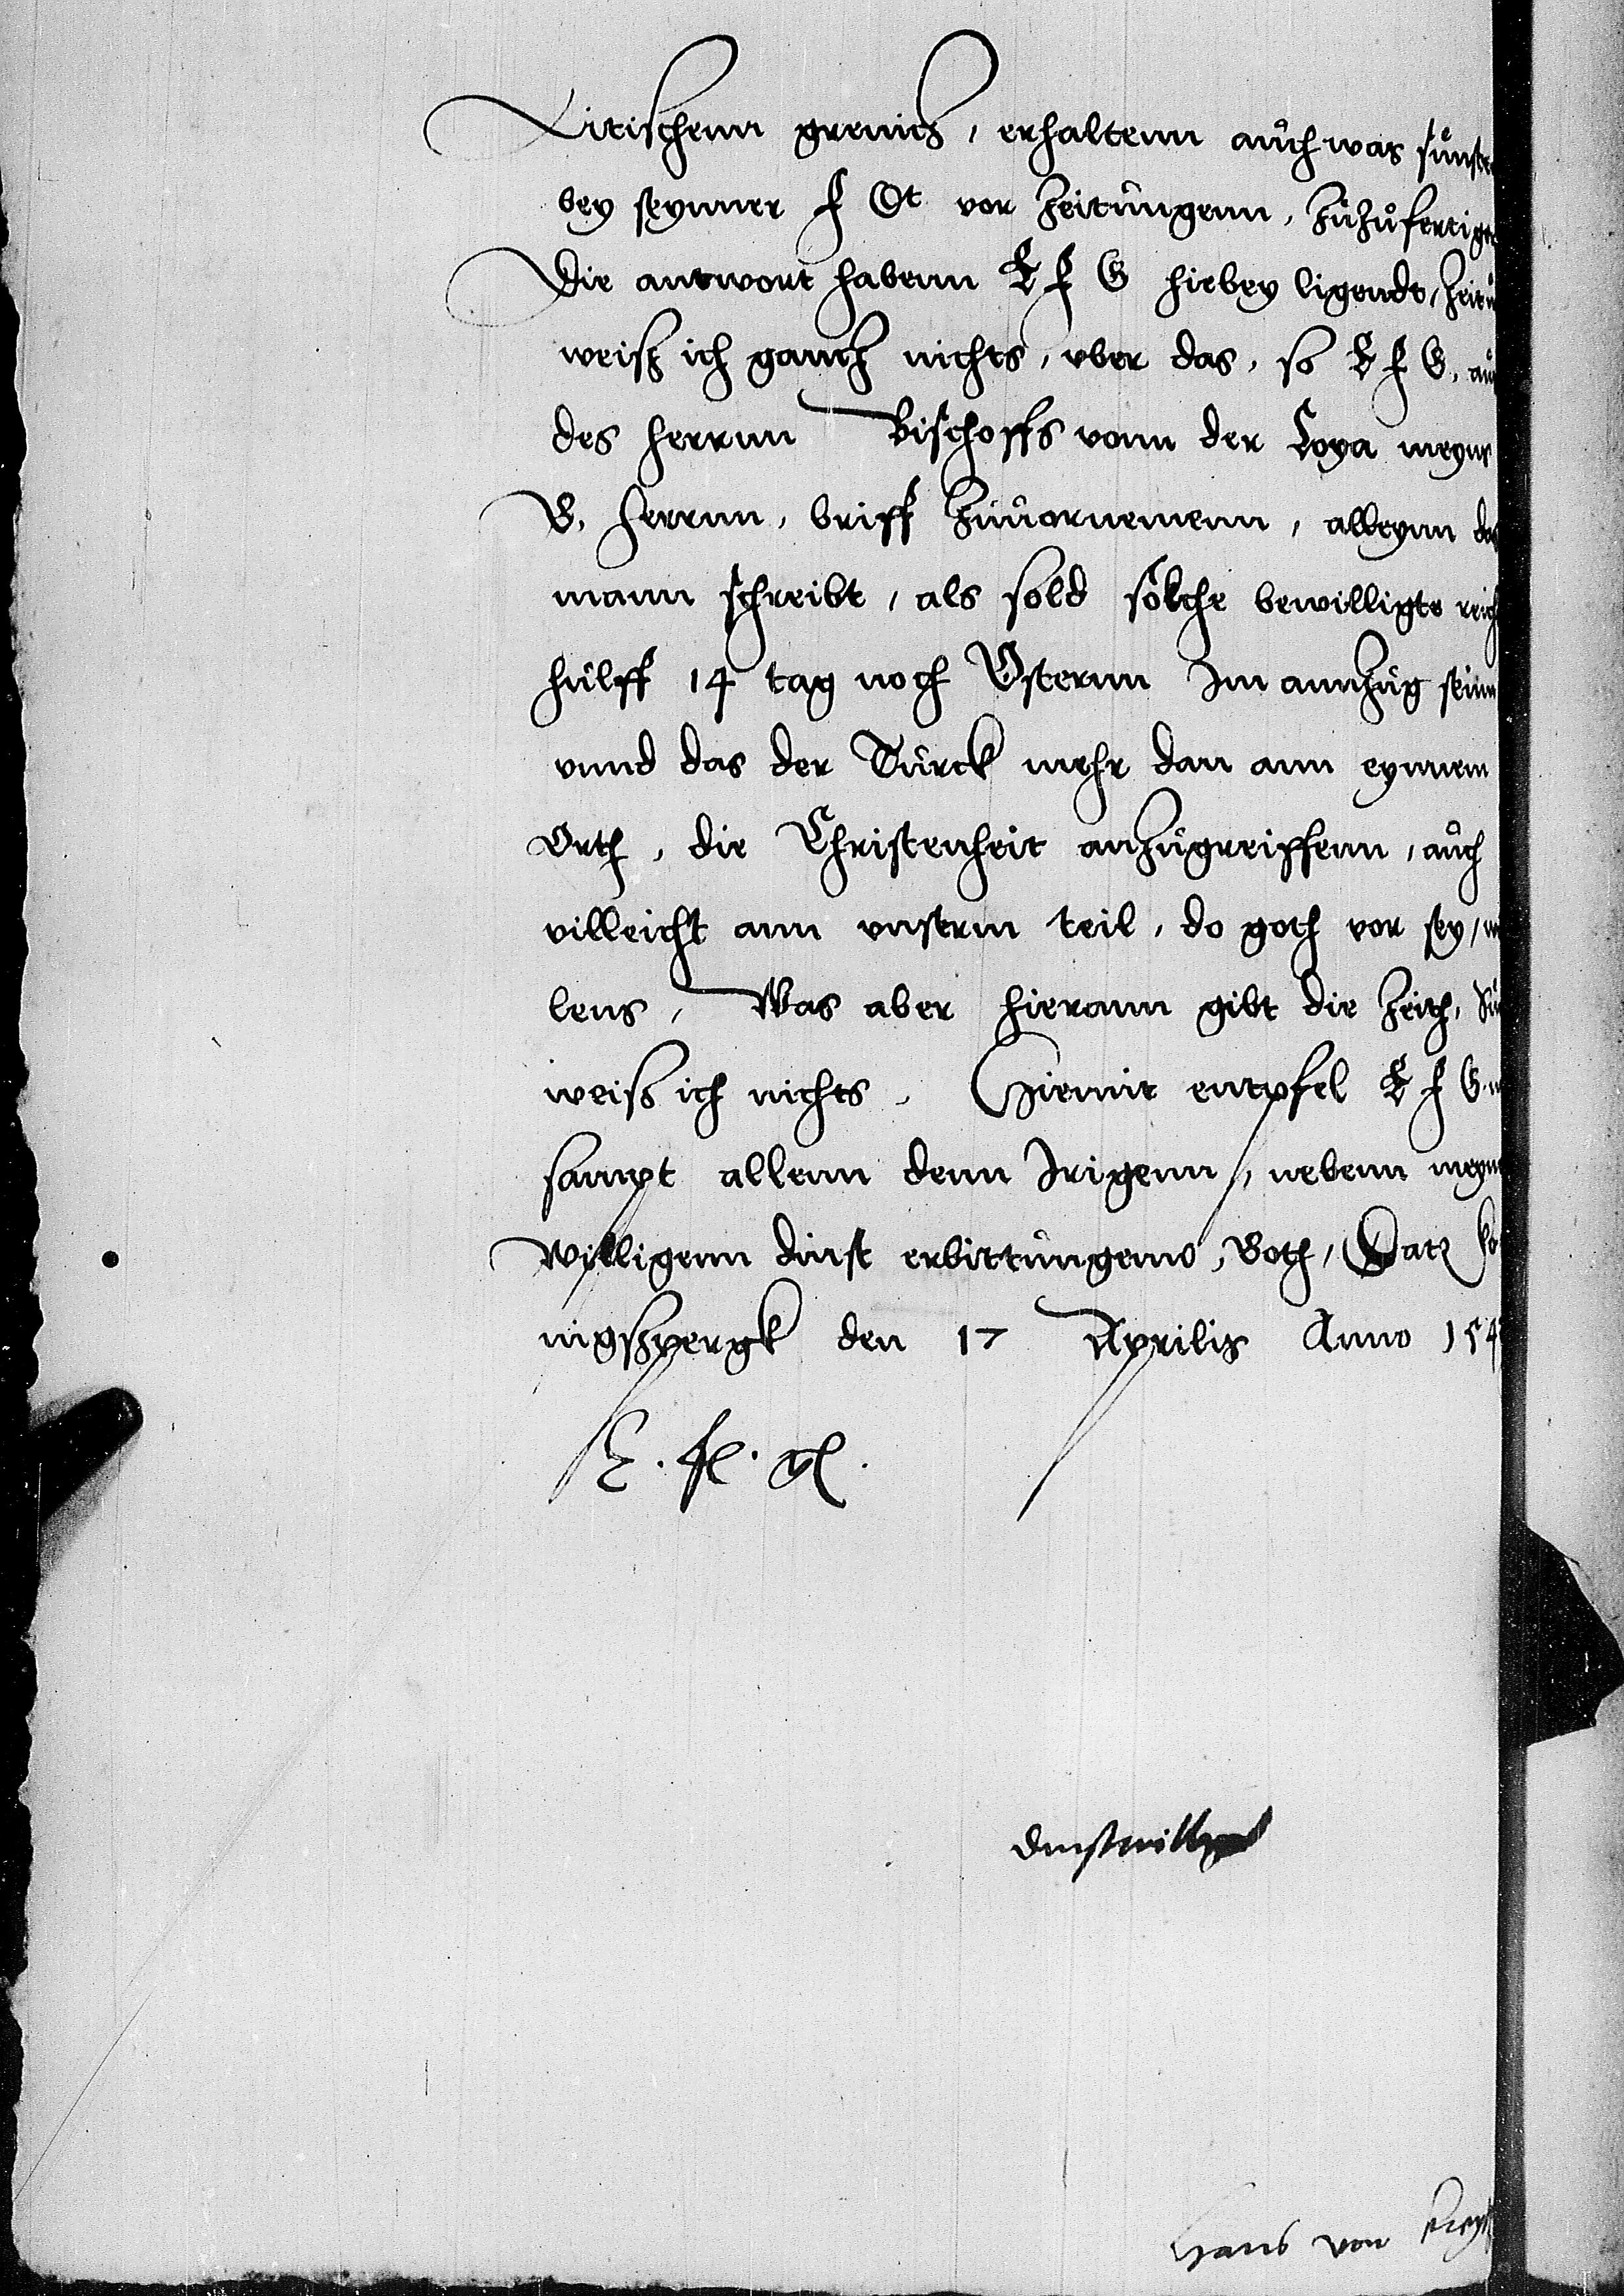 Litischenn grenicz, erhaltenn auch was sunst
bey seynner f Dt vor zeitungenn, zuzufertige
Die antwort habenn E f G hiebey ligende, zeitu
weisz ich gancz nichts, vber das, so E f G, au
des herrnn Bischoffs vonn der Loya meyns
G. herrnn, briff zuuornemenn, alleynn das
mann schreibt, als sold solche bewilligte reich
hulff 14 tag noch Osternn Im annzug seinn
vnnd das der Turck mehr dan ann eynnem
Orth, die Christenheit anzugreiffenn, auch
villeicht ann vnserm teil, do goth vor sey, w
lens, Was aber hierann gibt die zeith, Su
weisz ich nichts. Hiemit entpfel E f G
sampt allenn denn Irigenn, nebenn meyn
willigenn dinst erbittungenn, Goth, Datz Ko
nigszpergk den 17 Aprilis Anno 154
E. f. g.
dinstwilliger
Hans von